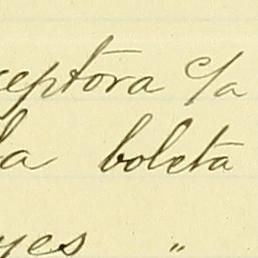 ceptora c/a
la boleta
yes "